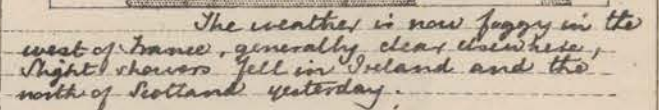 The weather is now foggy in the
west of France, generally clear elsewhere,
slight showers fell in Ireland and the
north of Scotland yesterday.